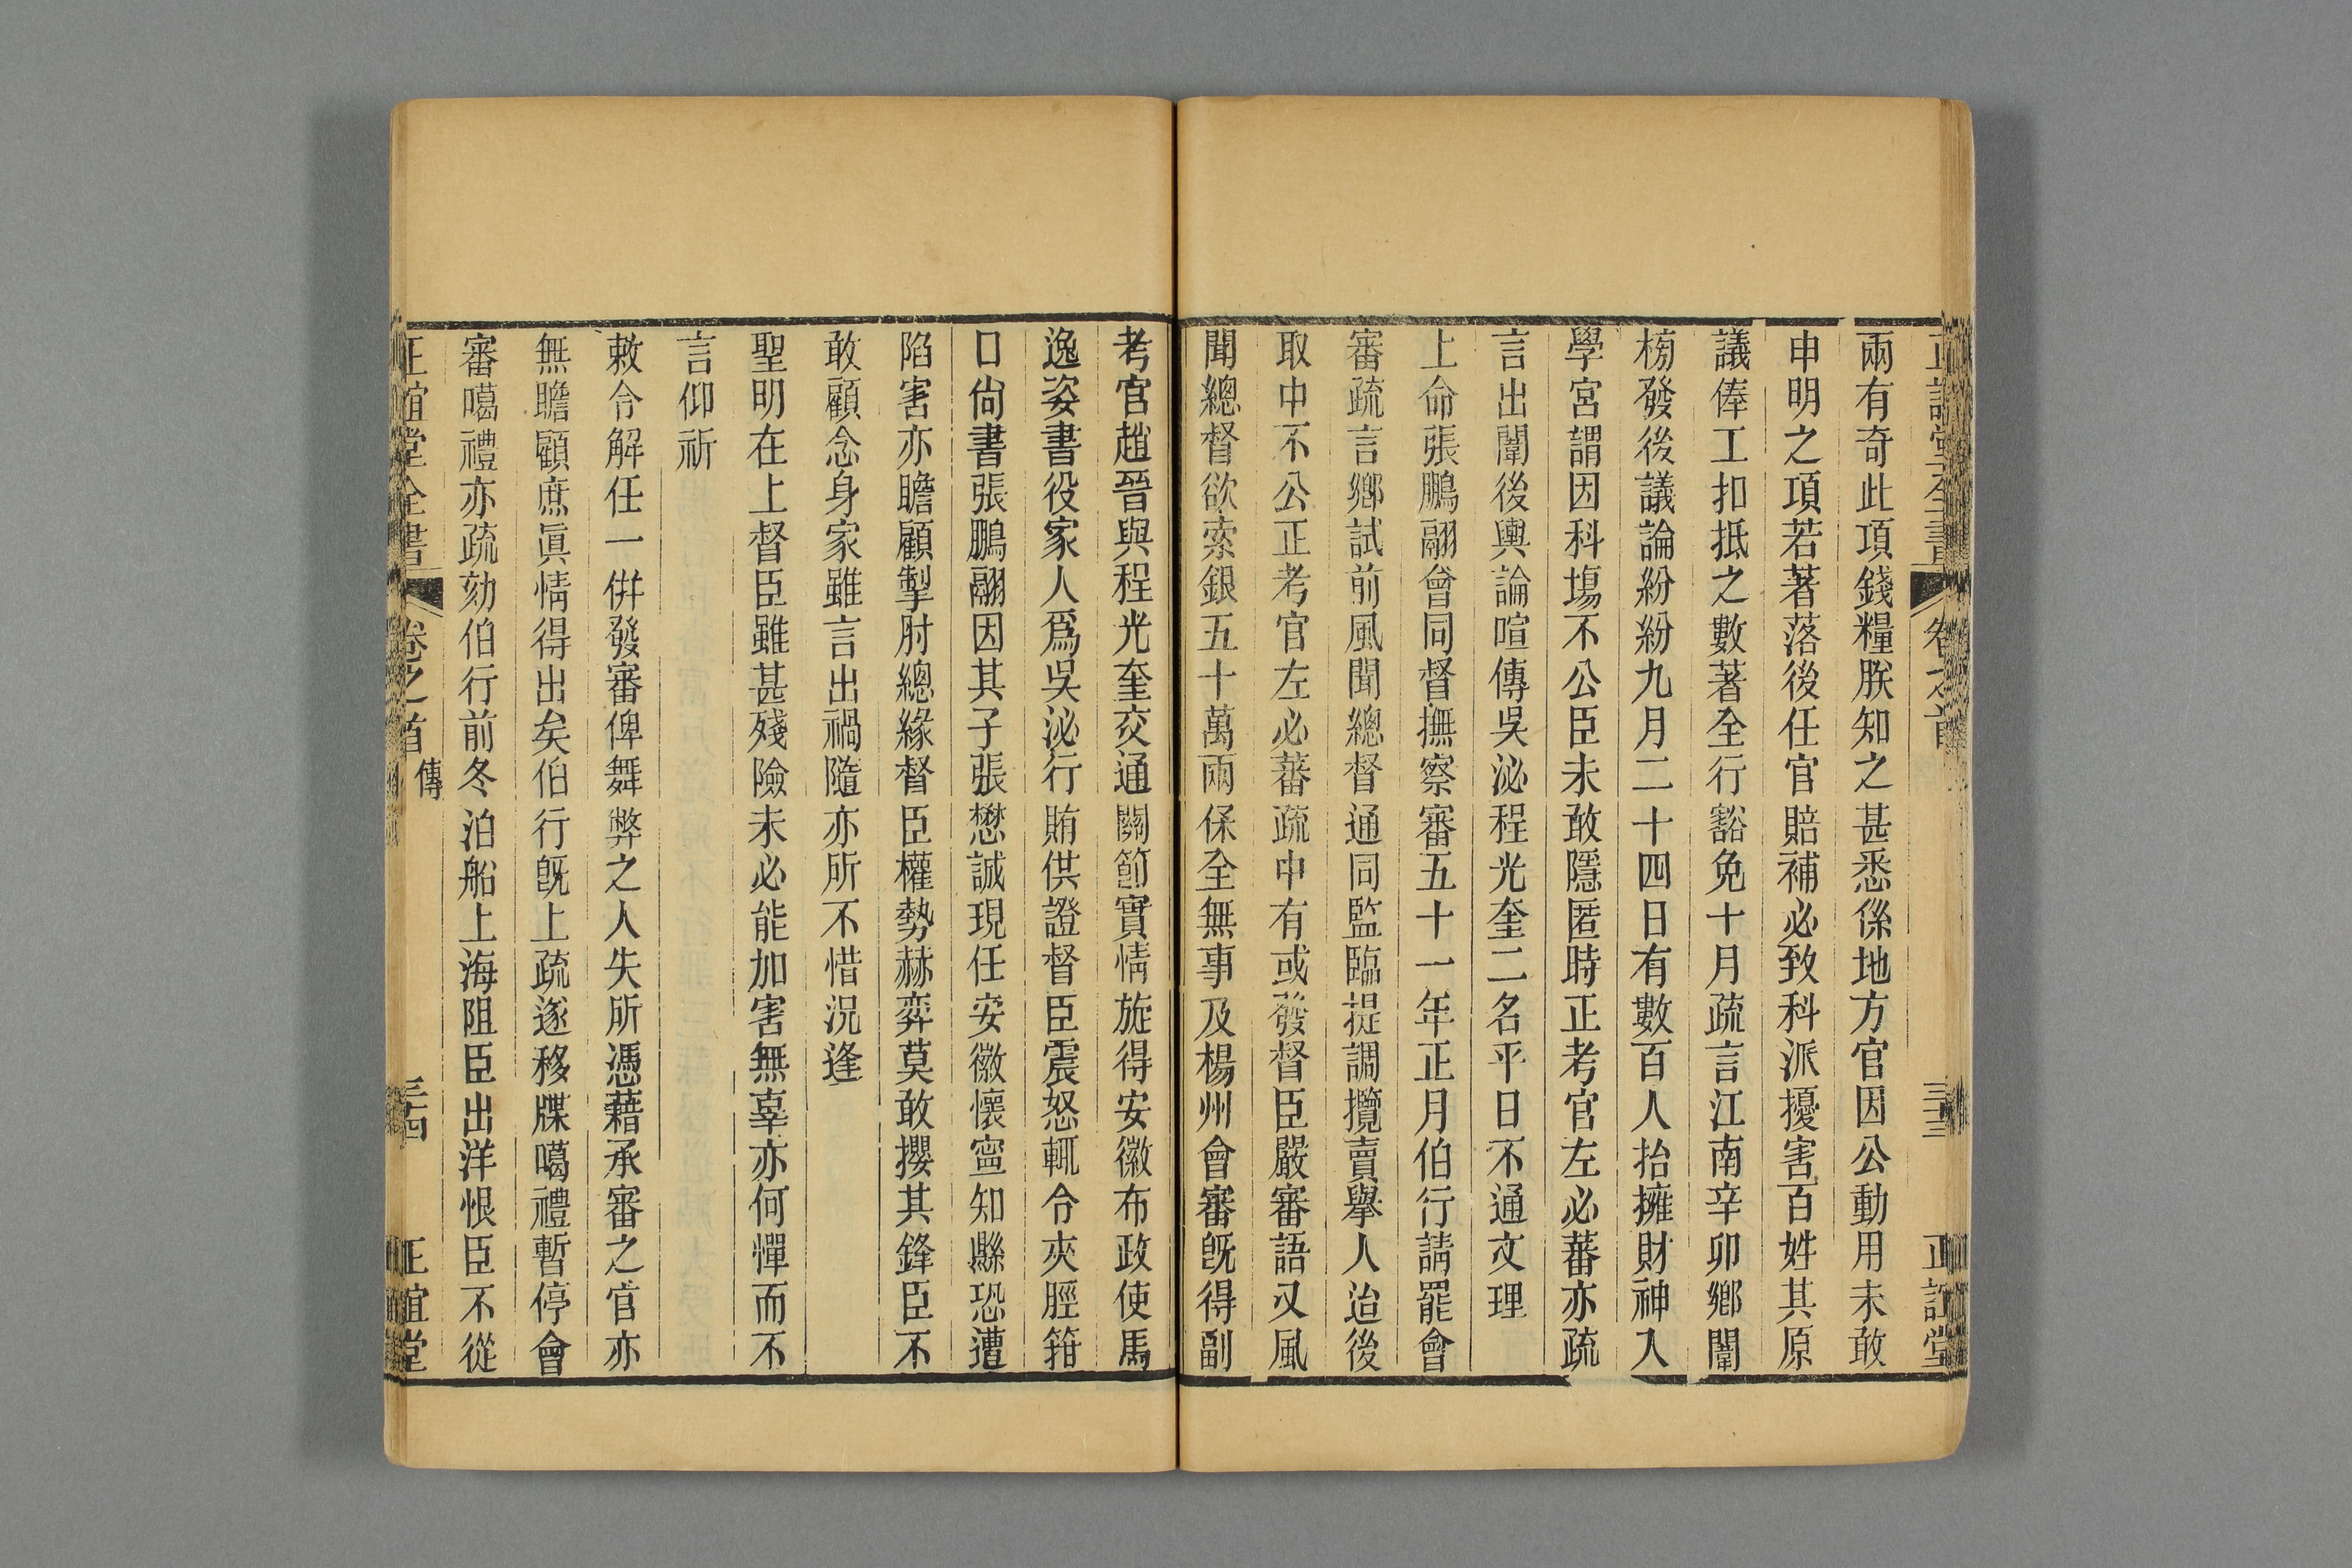 正誼堂全書 卷之首 三十三 正誼堂
兩有奇此項錢糧朕知之甚悉係地方官因公動用未敢
申明之項若著落後任官賠補必致科派擾害百姓其原
議俸工扣抵之數著全行豁免十月疏言江南辛卯鄉闈
榜發後議論紛紛九月二十四日有數百人抬擁財神入
學宮謂因科塲不公臣未敢隱匿時正考官左必蕃亦疏
言出闈後輿論喧傳吳泌程光奎二名平日不通文理
上命張鵬翮會同督撫察審五十一年正月伯行請罷會
審疏言鄉試前風聞總督通同監臨提調攬賣舉人迨後
取中不公正考官左必蕃疏中有或發督臣嚴審語又風
聞總督欲索銀五十萬兩保全無事及楊州會審旣得副
考官趙晉與程光奎交通關節實情旋得安徽布政使馬
逸姿書役家人爲吳泌行賄供證督臣震怒輒令夾脛箝
口尙書張鵬翮因其子張懋誠現任安徽懷寧知縣恐遭
陷害亦瞻顧掣肘總緣督臣權勢赫奕莫敢攖其鋒臣不
敢顧念身家雖言出禍隨亦所不惜況逢
聖明在上督臣雖甚殘險未必能加害無辜亦何憚而不
言仰祈
敕令解任一併發審俾舞弊之人失所憑藉承審之官亦
無瞻顧庶眞情得出矣伯行旣上疏遂移牒噶禮暫停會
審噶禮亦疏劾伯行前冬泊船上海阻臣出洋恨臣不從
正誼堂全書 卷之首 傳 三十四 正誼堂